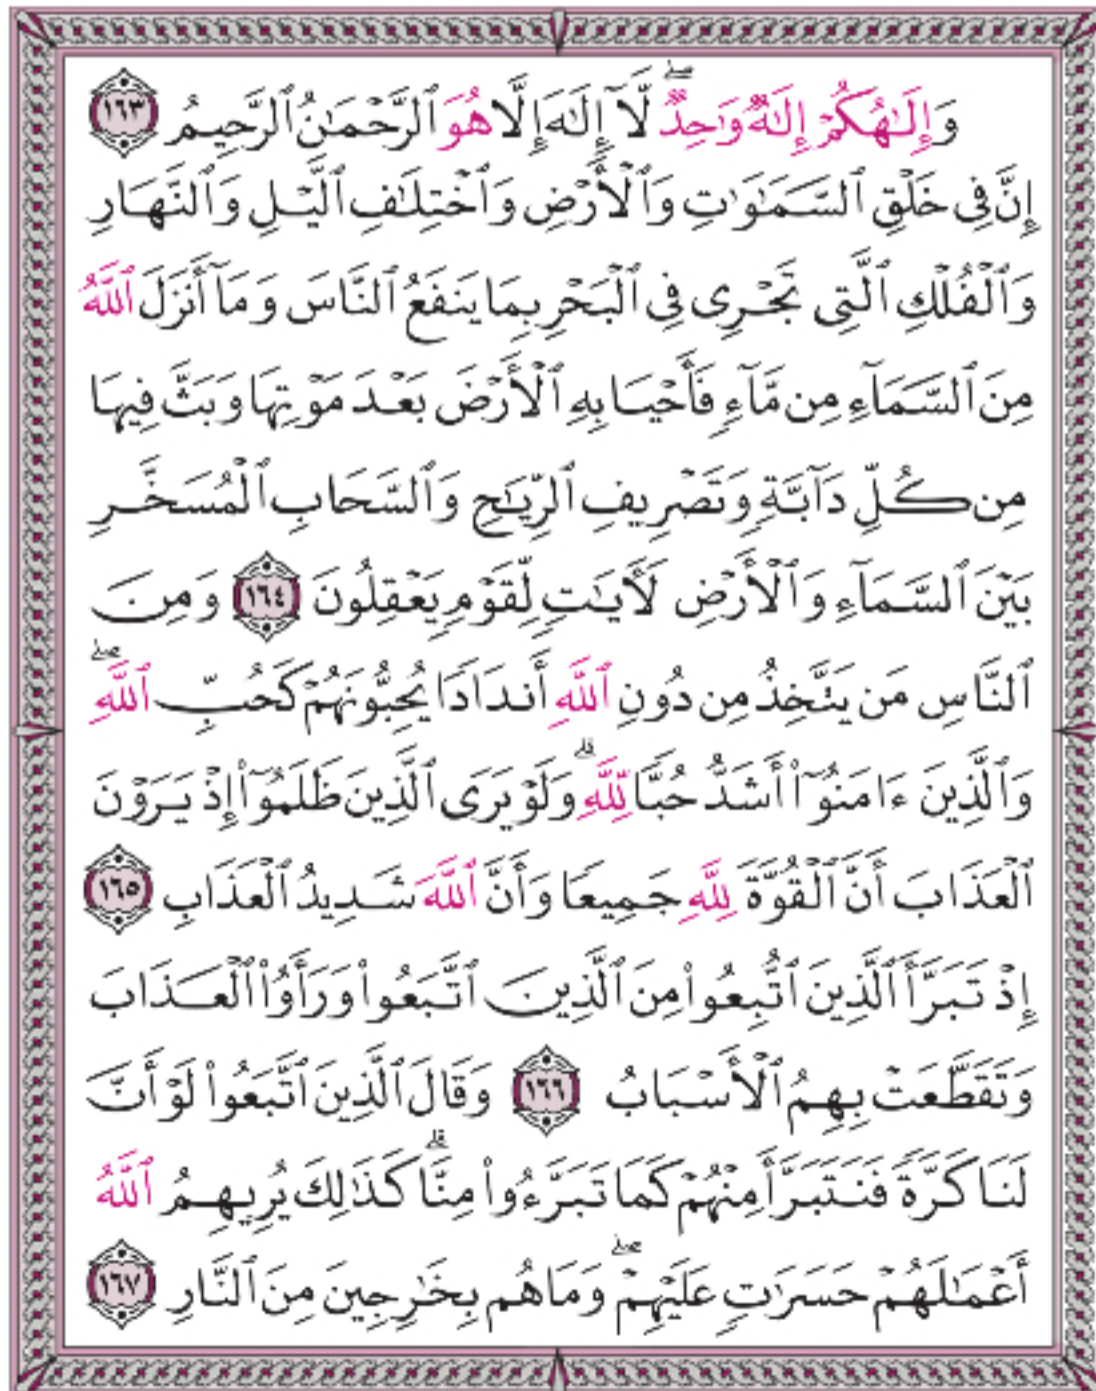 وَإِلَٰهُكُمْ إِلَٰهٌ وَٰحِدٌ ۖ لَّآ إِلَٰهَ إِلَّا هُوَ ٱلرَّحْمَٰنُ ٱلرَّحِيمُ ١٦٣
إِنَّ فِى خَلْقِ ٱلسَّمَٰوَٰتِ وَٱلْأَرْضِ وَٱخْتِلَٰفِ ٱلَّيْلِ وَٱلنَّهَارِ
وَٱلْفُلْكِ ٱلَّتِى تَجْرِى فِى ٱلْبَحْرِ بِمَا يَنفَعُ ٱلنَّاسَ وَمَآ أَنزَلَ ٱللَّهُ
مِنَ ٱلسَّمَآءِ مِن مَّآءٍ فَأَحْيَا بِهِ ٱلْأَرْضَ بَعْدَ مَوْتِهَا وَبَثَّ فِيهَا
مِن كُلِّ دَآبَّةٍ وَتَصْرِيفِ ٱلرِّيَٰحِ وَٱلسَّحَابِ ٱلْمُسَخَّرِ
بَيْنَ ٱلسَّمَآءِ وَٱلْأَرْضِ لَأَيَٰتٍ لِّقَوْمٍ يَعْقِلُونَ ١٦٤ وَمِنَ
ٱلنَّاسِ مَن يَتَّخِذُ مِن دُونِ ٱللَّهِ أَندَادًا يُحِبُّونَهُمْ كَحُبِّ ٱللَّهِ ۖ
وَٱلَّذِينَ ءَامَنُوٓا۟ أَشَدُّ حُبًّا لِّلَّهِ ۗ وَلَوْ يَرَى ٱلَّذِينَ ظَلَمُوٓا۟ إِذْ يَرَوْنَ
ٱلْعَذَابَ أَنَّ ٱلْقُوَّةَ لِلَّهِ جَمِيعًا وَأَنَّ ٱللَّهَ شَدِيدُ ٱلْعَذَابِ ١٦٥
إِذْ تَبَرَّأَ ٱلَّذِينَ ٱتُّبِعُوا۟ مِنَ ٱلَّذِينَ ٱتَّبَعُوا۟ وَرَأَوُا۟ ٱلْعَذَابَ
وَتَقَطَّعَتْ بِهِمُ ٱلْأَسْبَابُ ١٦٦ وَقَالَ ٱلَّذِينَ ٱتَّبَعُوا۟ لَوْ أَنَّ
لَنَا كَرَّةً فَنَتَبَرَّأَ مِنْهُمْ كَمَا تَبَرَّءُوا۟ مِنَّا ۗ كَذَٰلِكَ يُرِيهِمُ ٱللَّهُ
أَعْمَٰلَهُمْ حَسَرَٰتٍ عَلَيْهِمْ ۖ وَمَا هُم بِخَٰرِجِينَ مِنَ ٱلنَّارِ ١٦٧